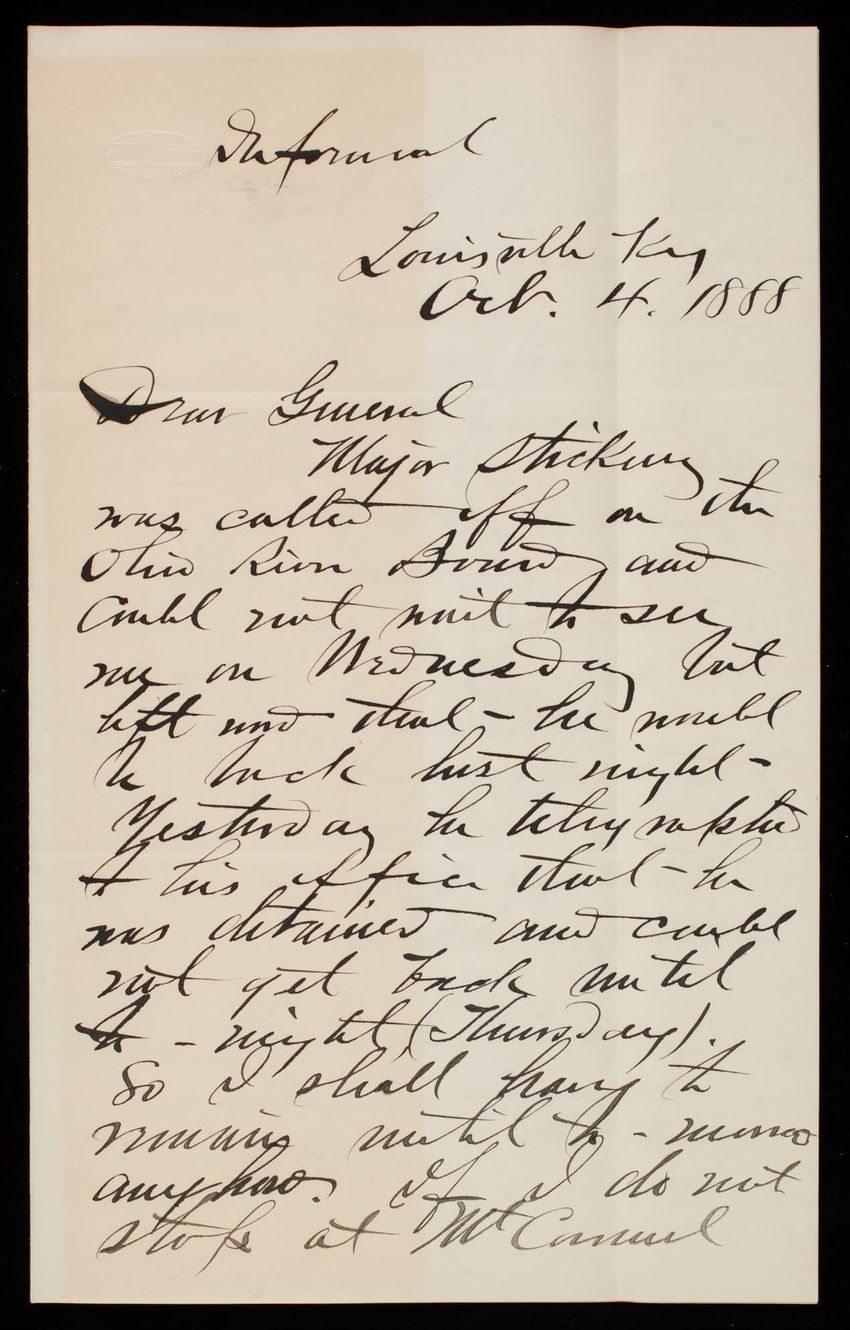 Informal
Louisville Ky
Oct. 4. 1888
Dear General
Major Stickney
was called off on the
Ohio River Board and
could not wait to see
me on Wednesday but
left word that - he would
be back last night -
Yesterday he telegraphed
to his office that - he
was detained and could
not get back until
to - night (Thursday).
So I shall have to
remain until to - morrow
anyhow. If I do not
stop at Mt Connel